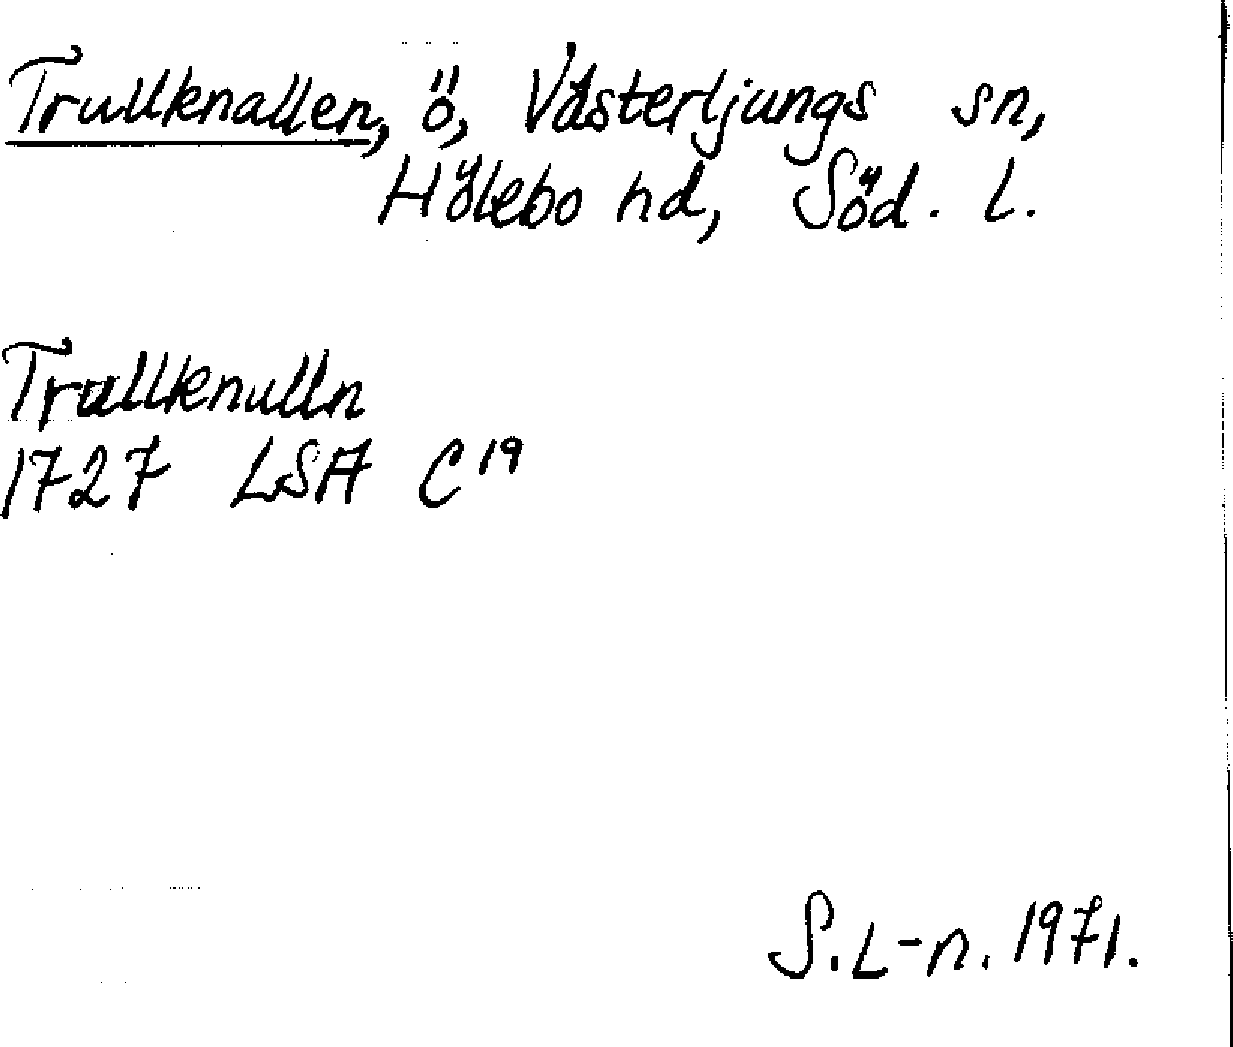 Trullknallen, ö, Västerljungs sn,
Hölebo hd, Söd. l.
Trullknulln
1727 LSA C19
S.L-n. 1971.